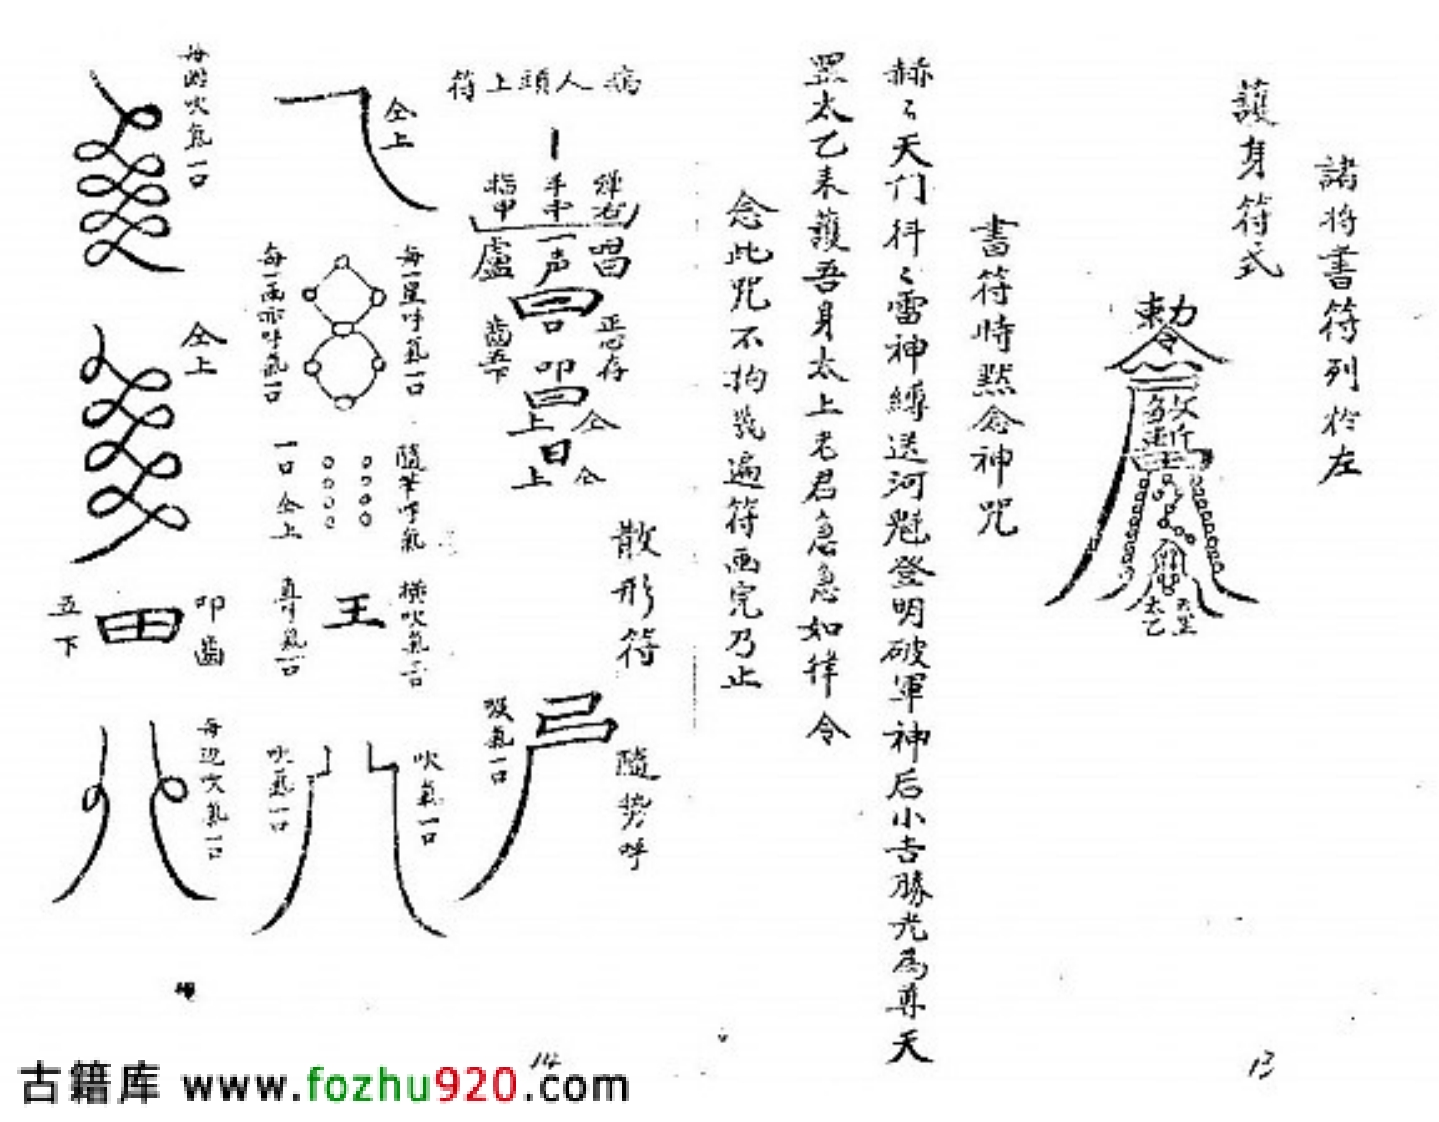 諸将書符列於左
護身符式
勅令
太乙
書符時黙念神咒
赫〻天门抖〻雷神縛送河魁登明破軍神后小吉勝光為尊天
罡太乙来護吾身太上老君急急如律令
念此咒不拘幾遍符画完乃止
13
病人頭上符
弹右手中指甲
唱一声盧
正心存
叩齒五下
仝上
仝上
散形符
隨势呼
吸氣一口
仝上
每一星呼氣一口
每一画亦呼氣一口
隨筆呼氣一口仝上
王
横吹氣一口
直呵氣一口
吹氣一口
吹氣一口
每圈吹氣一口
仝上
叩齒五下
田
每边吹氣一口
14
古籍库 www.fozhu920.com